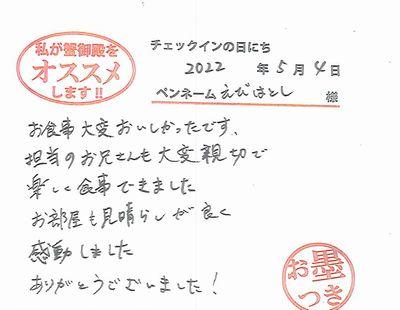 私が蟹御殿を
オススメ
します!!
チェックインの日にち
2022 年 5 月 4 日
ペンネーム えびはとし 様
お食事大変おいしかったです、
担当のお兄さんも大変親切で
楽しく食事できました
お部屋も見晴らしが良く
感動しました
ありがとうございました!
お墨
つき